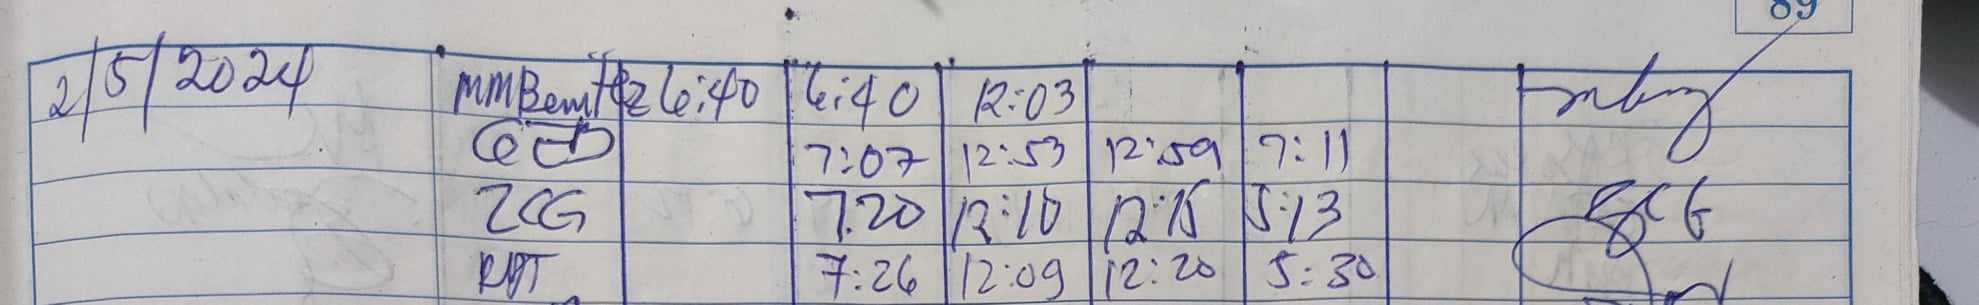 89
2/5/2024 MMBenitez 6:40 6:40 12:03
7:07 12:53 12:59 7:11
ZCG 7.20 12:10 12:15 5:13 ZCG
RPT 7:26 12:09 12:20 5:30